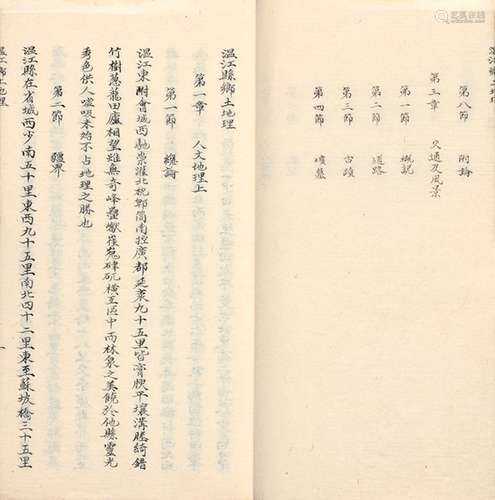 第八節　附論
第三章　交通及風景
第一節　概説
第二節　道路
第三節　古蹟
第四節　墳墓
溫江縣鄉土地理
第一章　人文地理上
第一節　總論
溫江東附會城西馳崇灌北枕郫簡南控廣都延袤九十五里皆膏腴平壤溝塍綺錯
竹樹蔥蘢田廬相望雖無奇峰疊巘崔嵬硉矹橫亙區中而林泉之美饒於他縣靈光
秀色供人噓吸未始不占地理之勝也
第二節　疆界
溫江縣在省城西少南五十里東西九十五里南北四十二里東至蘇坡橋三十五里
溫江鄉土地理
一